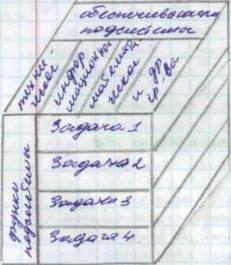 обеспечивающие
подсистемы
техни-
ческое
инфор
мационное
математи-
ческое
и др
ср-ва
функц
подсистемы
Задача 1
Задача 2
Задача 3
Задача 4.